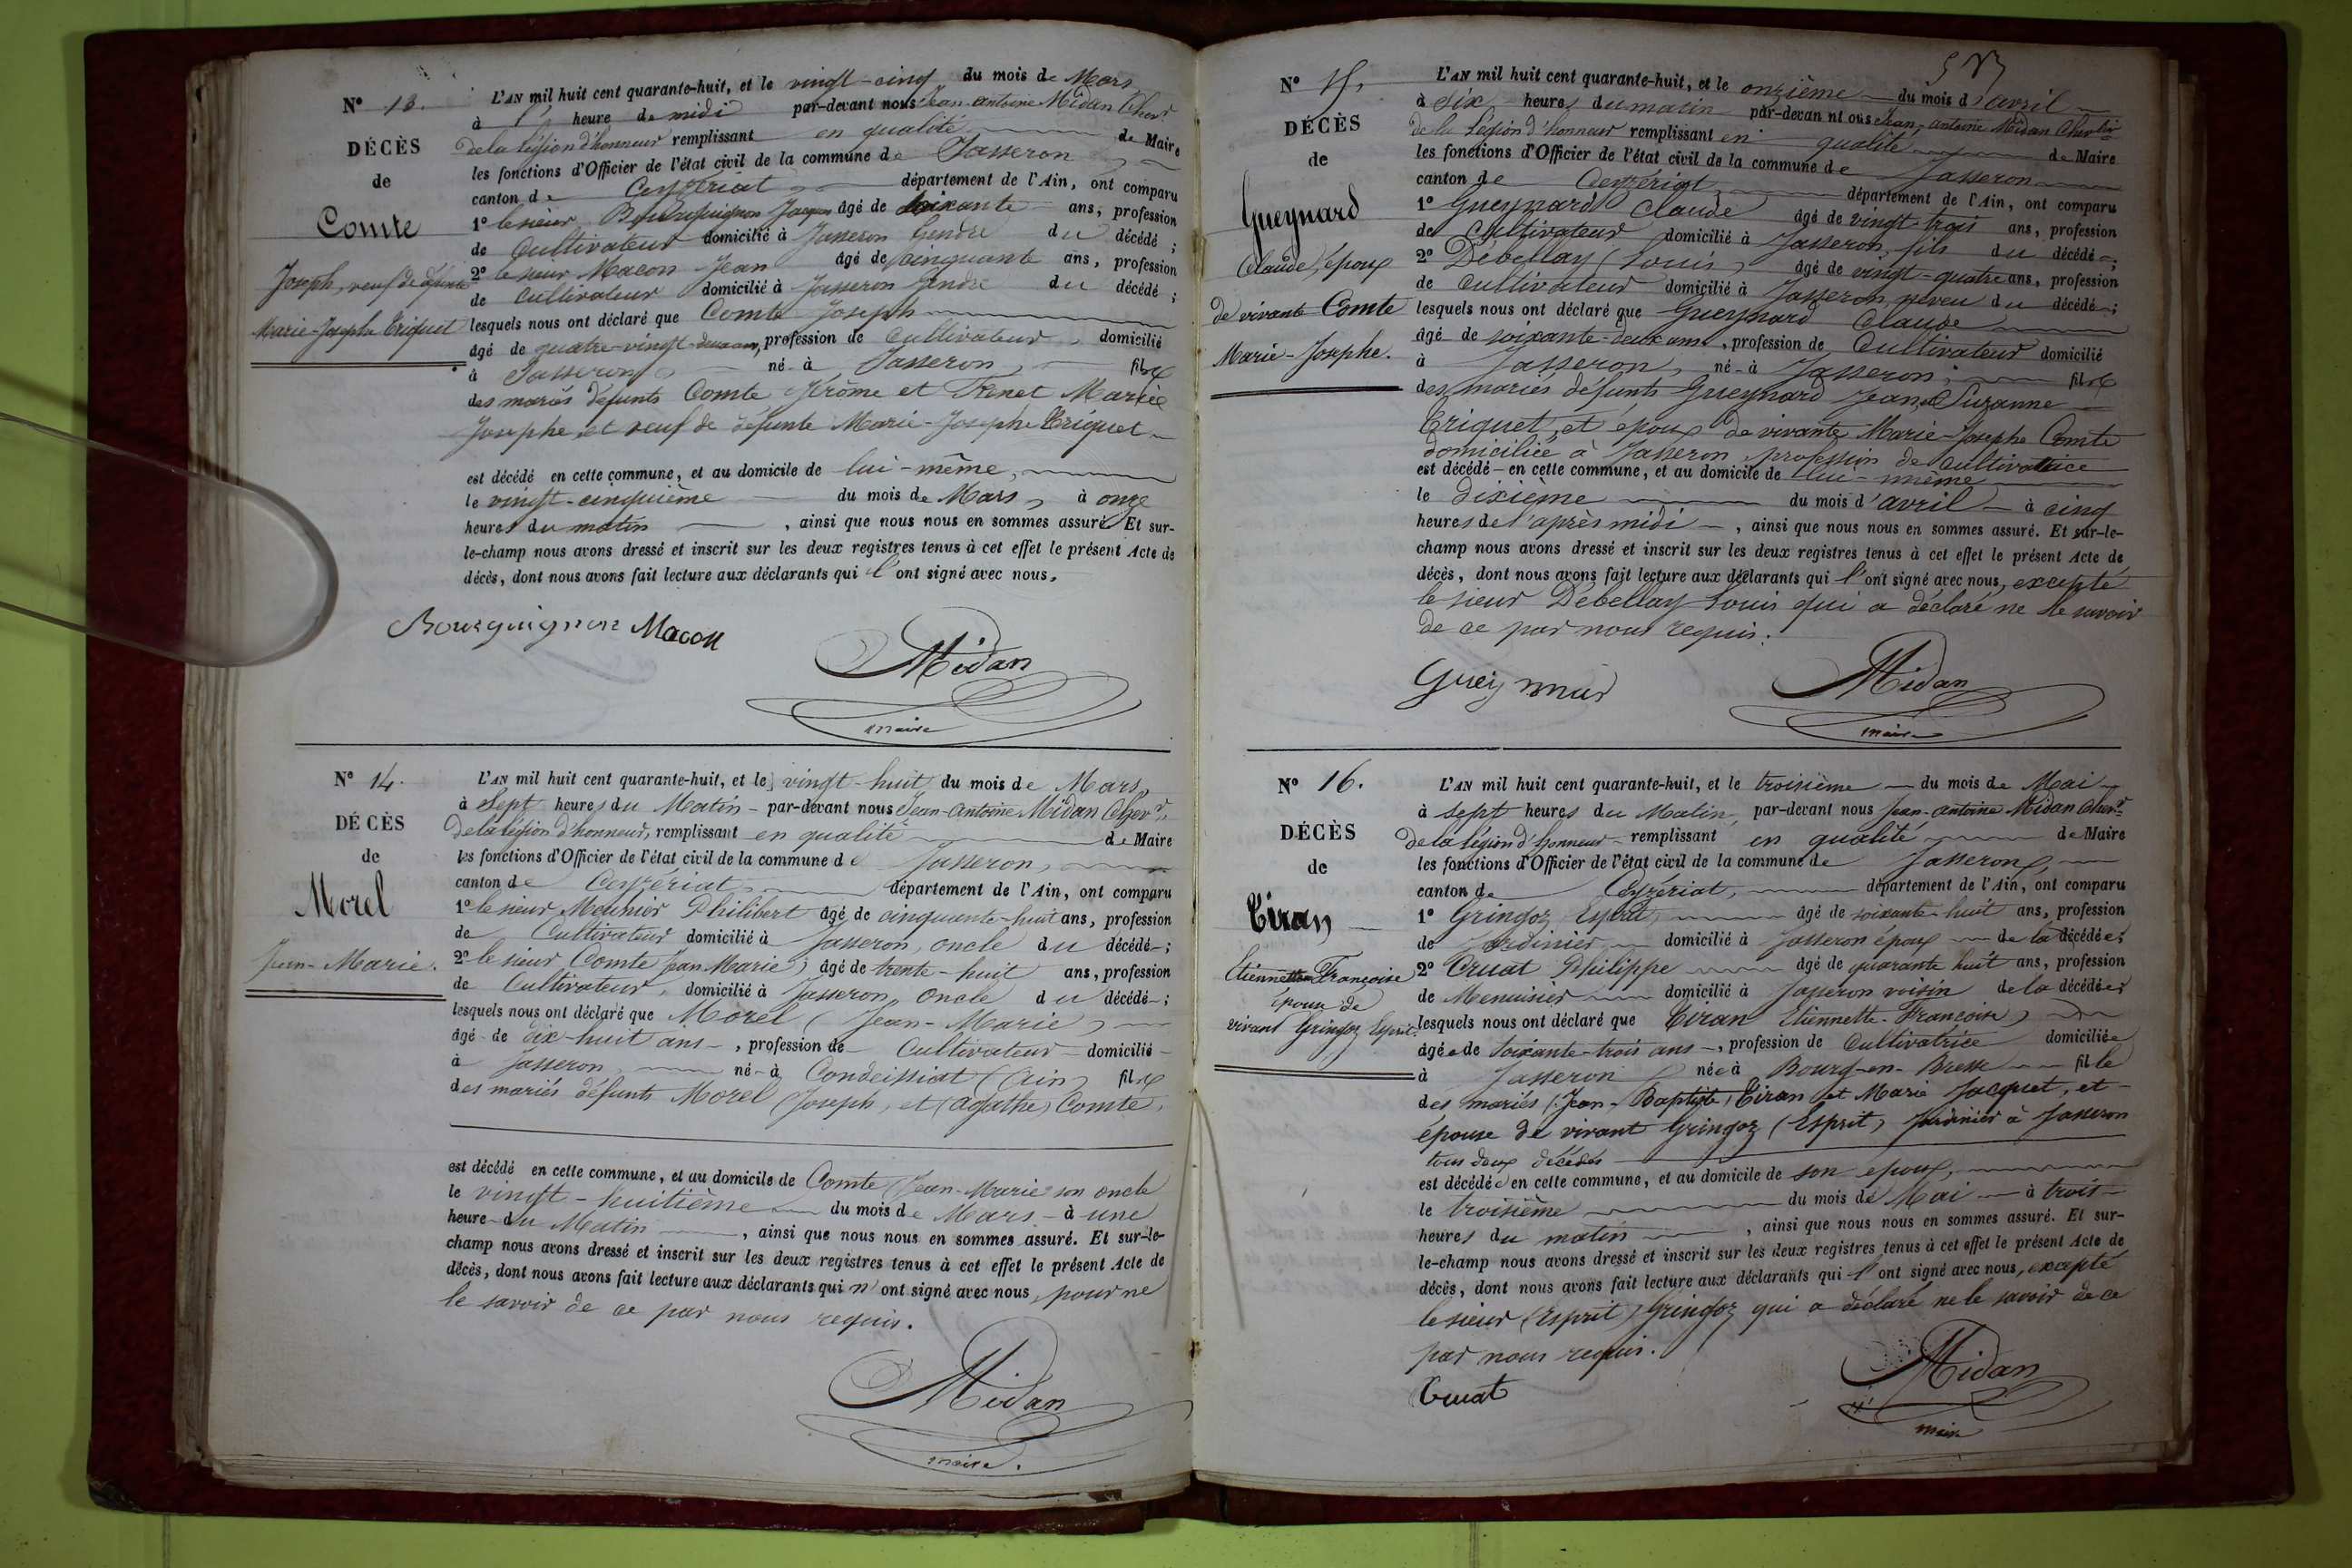 N° 13.
DÉCÈS
de
Comte
Joseph, veuf de défunte
Marie-Josephe Triquet
L'AN mil huit cent quarante-huit, et le vingt-cinq du mois de Mars
à heure de midi par-devant nous Jean-Antoine Midan Chevr
de la légion d'honneur remplissant en qualité de Maire
les fonctions d'Officier de l'état civil de la commune de Jasseron
canton de Ceyzériat département de l'Ain, ont comparu
1° le sieur Bourguignon Jacques âgé de soixante ans, profession
de Cultivateur domicilié à Jasseron Gendre du décédé ;
2° le sieur Macon Jean âgé de cinquante ans, profession
de Cultivateur domicilié à Jasseron Gendre du décédé ;
lesquels nous ont déclaré que Comte Joseph
âgé de quatre-vingt-deux ans, profession de Cultivateur, domicilié
à Jasseron né à Jasseron, fils
des mariés défunts Comte Jérôme et Tenet Marie
Josephe, et veuf de défunte Marie-Josephe Triquet
est décédé en cette commune, et au domicile de lui-même,
le vingt-cinquième du mois de Mars, à onze
heures du matin, ainsi que nous nous en sommes assuré. Et sur-
le-champ nous avons dressé et inscrit sur les deux registres tenus à cet effet le présent Acte de
décès, dont nous avons fait lecture aux déclarants qui l'ont signé avec nous.
Bourguignon Macon
Midan
maire
N° 14.
DÉCÈS
de
Morel
Jean-Marie.
L'AN mil huit cent quarante-huit, et le vingt-huit du mois de Mars,
à sept heures du Matin - par-devant nous Jean-Antoine Midan Chevr.
de la légion d'honneur, remplissant en qualité de Maire
les fonctions d'Officier de l'état civil de la commune de Jasseron,
canton de Ceyzériat, département de l'Ain, ont comparu
1° le sieur Meunier Philibert âgé de cinquante-huit ans, profession
de Cultivateur domicilié à Jasseron, oncle du décédé - ;
2° le sieur Comte Jean Marie, âgé de trente-huit ans, profession
de Cultivateur, domicilié à Jasseron, Oncle du décédé - ;
lesquels nous ont déclaré que Morel (Jean-Marie)
âgé de dix-huit ans -, profession de Cultivateur - domicilié -
à Jasseron, né - à Condeissiat (Ain) fils
des mariés défunts Morel (Joseph, et (Agathe) Comte,
est décédé en cette commune, et au domicile de Comte (Jean-Marie) son oncle
le vingt-huitième du mois de Mars - à une
heure - du Matin, ainsi que nous nous en sommes assuré. Et sur-le-
champ nous avons dressé et inscrit sur les deux registres tenus à cet effet le présent Acte de
décès, dont nous avons fait lecture aux déclarants qui n'ont signé avec nous, pour ne
le savoir de ce par nous requis.
Midan
maire.
N° 15,
DÉCÈS
de
Gueynard
Claude, époux
de vivante Comte
Marie-Josephe.
L'AN mil huit cent quarante-huit, et le onzième du mois d'avril
à six heures du matin par-devan nt ous Jean-Antoine Midan Chevlir
de la Légion d'honneur remplissant en qualité de Maire
les fonctions d'Officier de l'état civil de la commune de Jasseron
canton de Ceyzériat, département de l'Ain, ont comparu
1° Gueynard Claude âgé de vingt-trois ans, profession
de Cultivateur domicilié à Jasseron, fils du décédé - ;
2° Débellay (Louis) âgé de vingt-quatre ans, profession
de Cultivateur domicilié à Jasseron, neveu du décédé - ;
lesquels nous ont déclaré que Gueynard Claude
âgé de soixante-deux ans, profession de Cultivateur domicilié
à Jasseron, né - à Jasseron ; fils
des mariés défunts Gueynard Jean, Suzanne
Triquet, et époux de vivante Marie-Josephe Comte
domiciliée à Jasseron, profession de Cultivatrice
est décédé - en cette commune, et au domicile de lui-même
le dixième du mois d'avril - à cinq
heures de l'après midi -, ainsi que nous nous en sommes assuré. Et sur-le-
champ nous avons dressé et inscrit sur les deux registres tenus à cet effet le présent Acte de
décès, dont nous avons fait lecture aux déclarants qui l'ont signé avec nous, excepté
le sieur Débellay Louis qui a déclaré ne le savoir
de ce par nous requis.
Midan
maire
N° 16.
DÉCÈS
de
Tiran
Etiennette Françoise
épouse de
vivant Gringoz Esprit.
L'AN mil huit cent quarante-huit, et le troisième du mois de Mai
à sept heures du Matin, par-devant nous Jean-Antoine Midan Chevr.
de la légion d'honneur remplissant en qualité de Maire
les fonctions d'Officier de l'état civil de la commune de Jasseron,
canton de Ceyzériat, département de l'Ain, ont comparu
1° Gringoz Esprit, âgé de soixante-huit ans, profession
de Jardinier domicilié à Jasseron époux de la décédée ;
2° Cruat Philippe âgé de quarante huit ans, profession
de Menuisier domicilié à Jasseron voisin de la décédée ;
lesquels nous ont déclaré que Tiran Etiennette-Françoise
âgée de soixante-trois ans -, profession de Cultivatrice domiciliée
à Jasseron, née à Bourg-en-Bresse fille
des mariés (Jean-Baptiste) Tiran et Marie Jacquet, et -
épouse de vivant Gringoz (Esprit) Jardinier à Jasseron
tous deux décédés
est décédée en cette commune, et au domicile de son époux,
le troisième du mois de Mai à trois
heures du matin, ainsi que nous nous en sommes assuré. Et sur-
le-champ nous avons dressé et inscrit sur les deux registres tenus à cet effet le présent Acte de
décès, dont nous avons fait lecture aux déclarants qui l'ont signé avec nous, excepté
le sieur (Esprit) Gringoz qui a déclaré ne le savoir de ce
par nous requis.
Cruat
Midan
maire